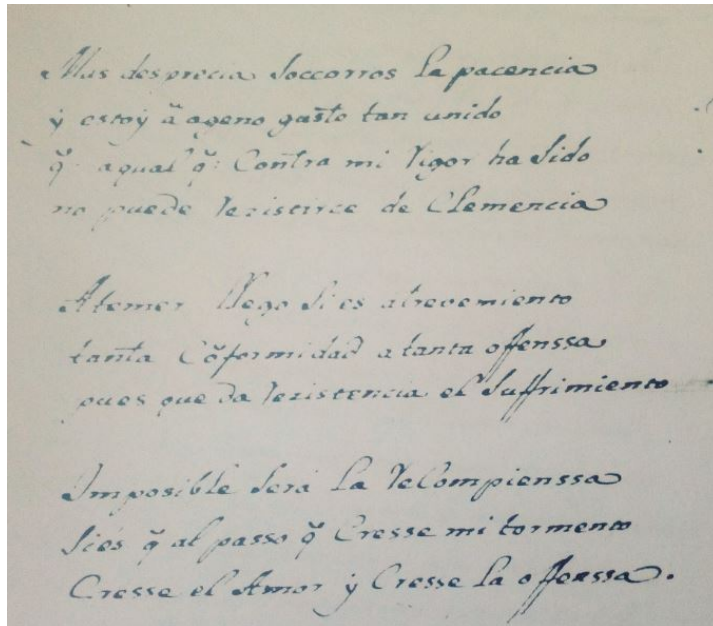 Mas desprecia soccorros la pacencia
y estoy a ageno gasto tan unido
q̃ aqual q̃: Contra mi Vigor ha sido
no puede rezistirce de Clemencia
Atemer llego si es atrevemiento
tanta Cõformidad a tanta offenssa
pues que da rezistencia el suffrimiento
Imposible será la reCompienssa
sies q̃ al passo q̃ Cresse mi tormento
Cresse el Amor y Cresse la offenssa.